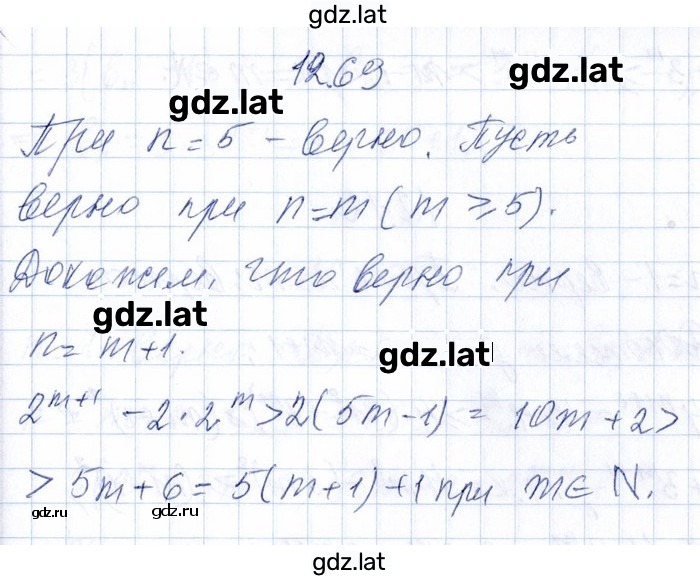 gdz.lat
12.69
gdz.lat
gdz.lat
При n = 5 – верно. Пусть
верно при n = m (m ≥ 5).
Докажем, что верно при
gdz.lat
n = m+1.
gdz.lat
2^{m+1} – 2·2^m > 2(5m – 1) = 10m + 2 >
> 5m + 6 = 5(m+1) + 1 при m ∈ N.
gdz.ru
gdz.ru
gdz.lat